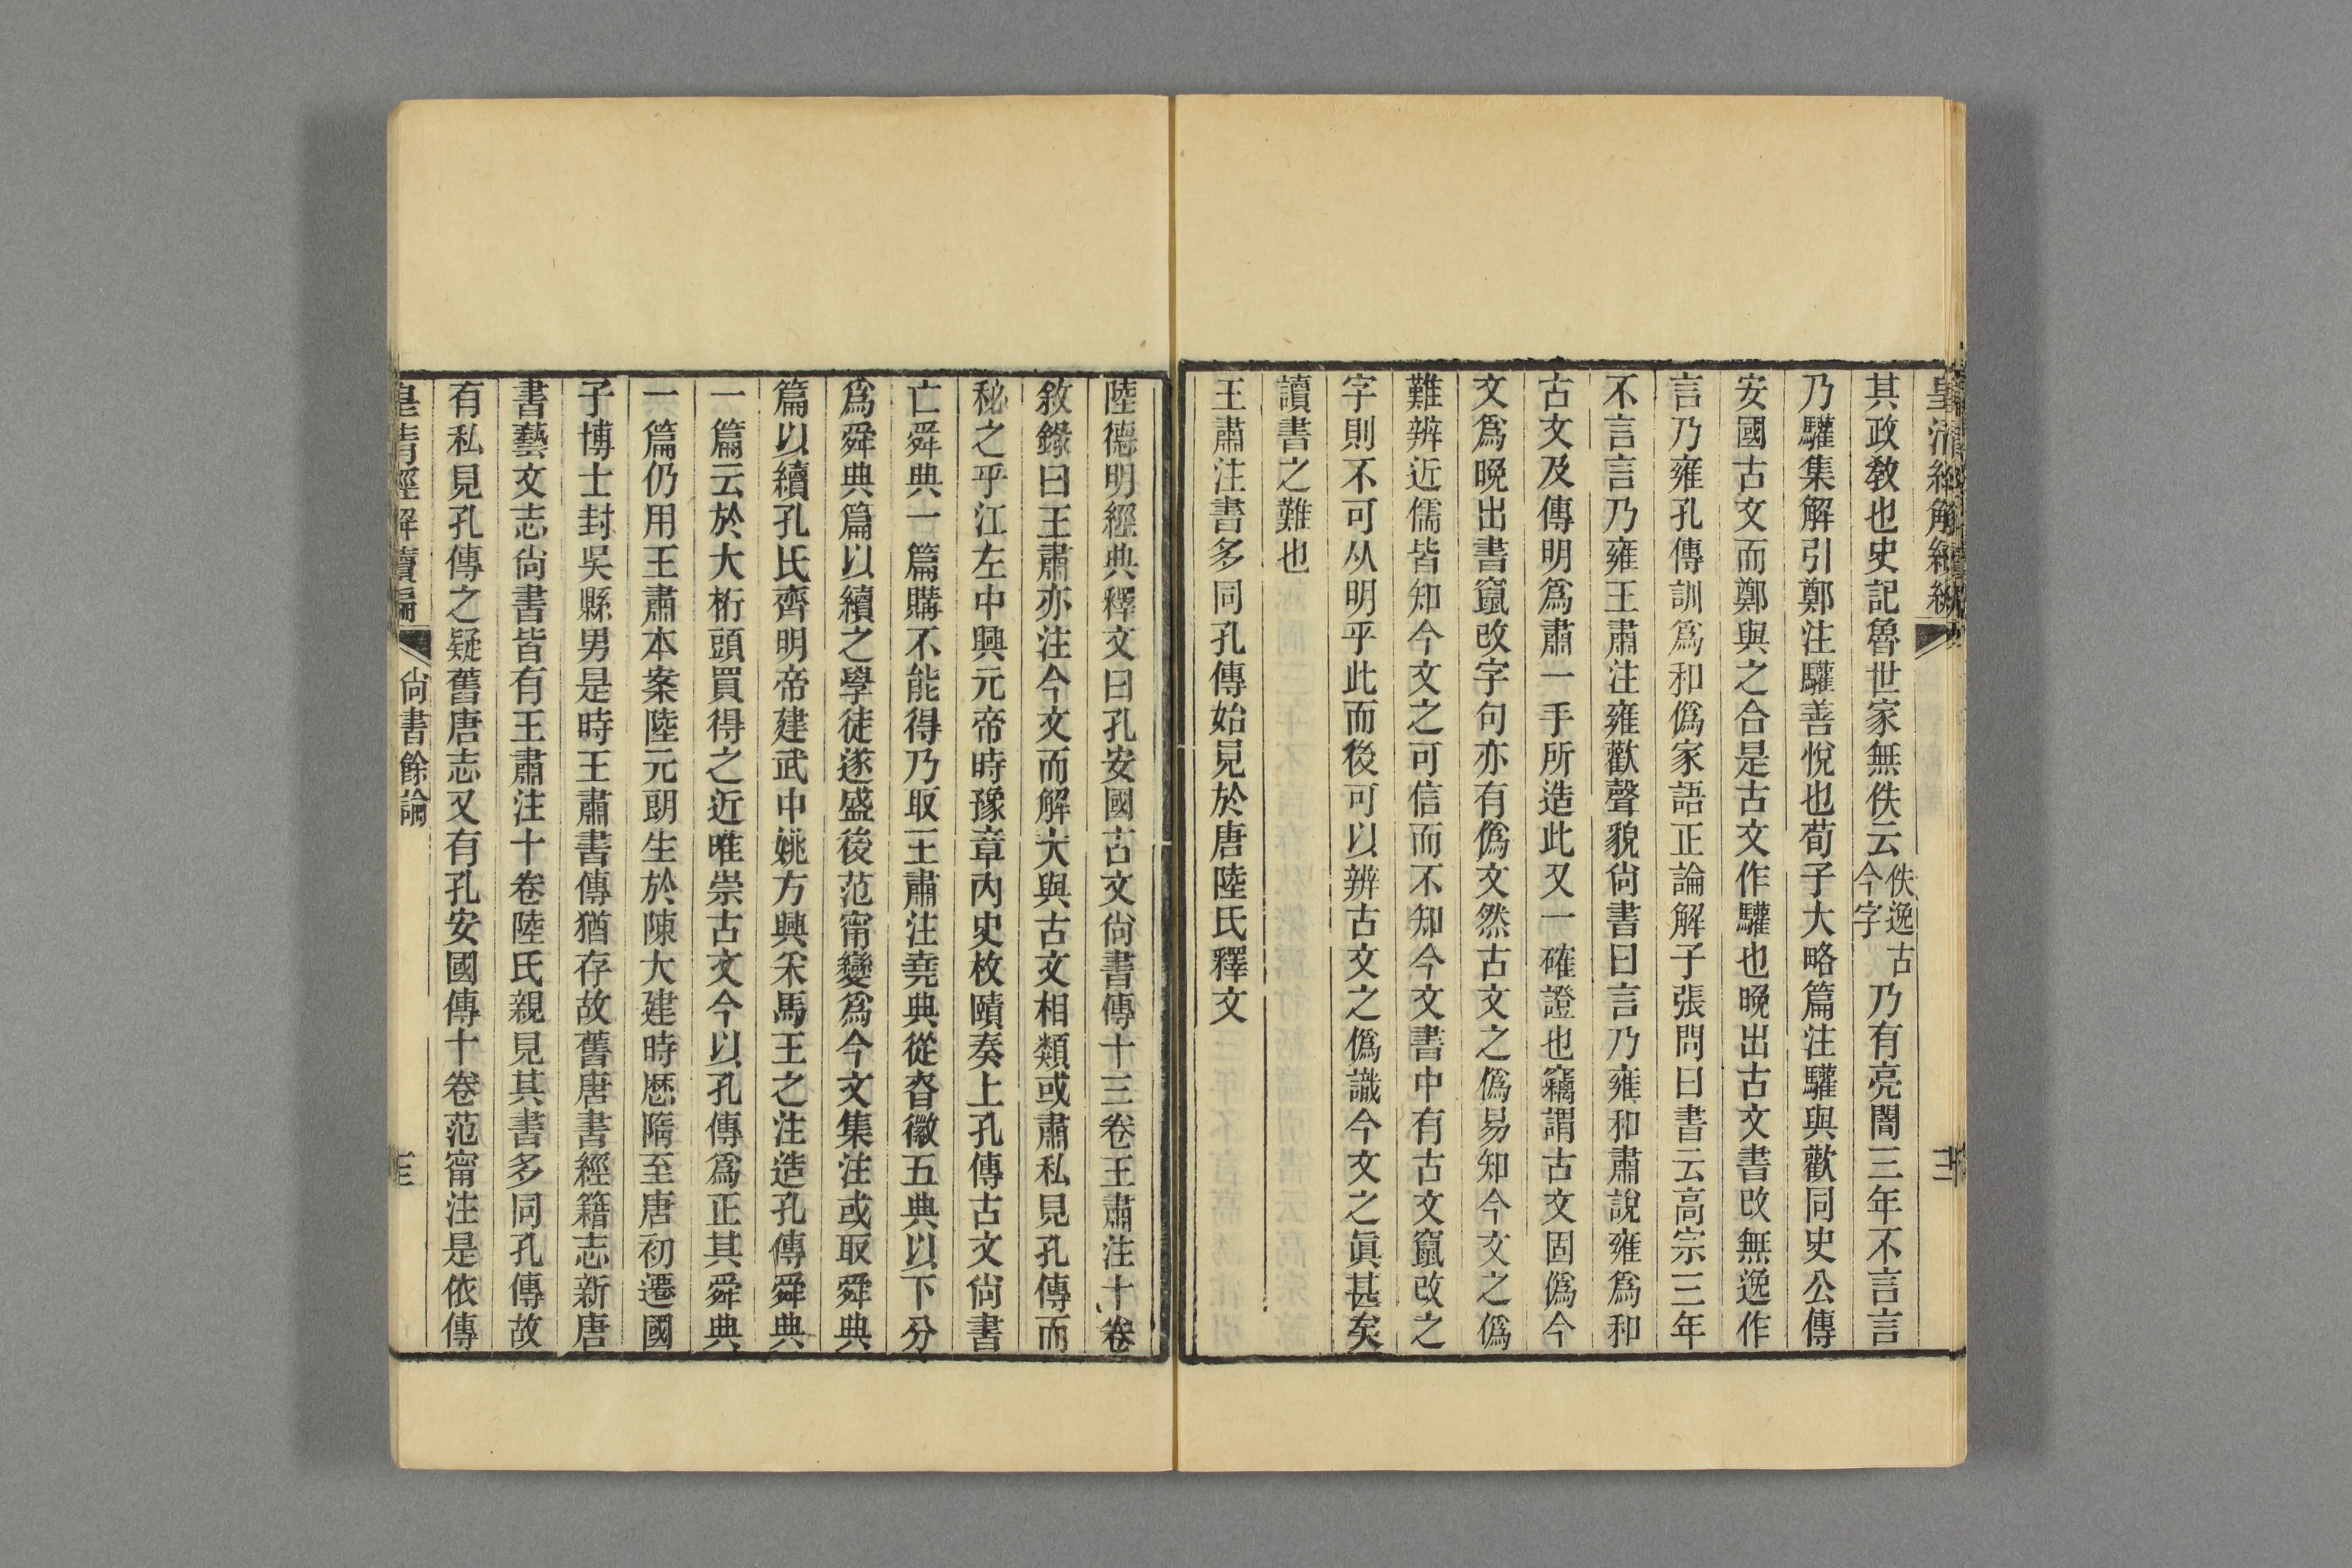 其政敎也史記魯世家無佚云佚逸古今字乃有亮闇三年不言言
乃驩集解引鄭注驩善悅也荀子大略篇注驩與歡同史公傳
安國古文而鄭與之合是古文作驩也晚出古文書改無逸作
言乃雍孔傳訓爲和僞家語正論解子張問曰書云高宗三年
不言言乃雍王肅注雍歡聲貌尙書曰言乃雍和肅說雍爲和
古文及傳明爲肅一手所造此又一確證也竊謂古文固僞今
文爲晚出書竄改字句亦有僞文然古文之僞易知今文之僞
難辨近儒皆知今文之可信而不知今文書中有古文竄改之
字則不可从明乎此而後可以辨古文之僞識今文之眞甚矣
讀書之難也
王肅注書多同孔傳始見於唐陸氏釋文
陸德明經典釋文曰孔安國古文尙書傳十三卷王肅注十卷
敘錄曰王肅亦注今文而解大與古文相類或肅私見孔傳而
秘之乎江左中興元帝時豫章內史枚賾奏上孔傳古文尙書
亡舜典一篇購不能得乃取王肅注堯典從眘徽五典以下分
爲舜典篇以續之學徒遂盛後范甯變爲今文集注或取舜典
篇以續孔氏齊明帝建武中姚方興采馬王之注造孔傳舜典
一篇云於大桁頭買得之近唯崇古文今以孔傳爲正其舜典
一篇仍用王肅本案陸元朗生於陳大建時歷隋至唐初遷國
子博士封吳縣男是時王肅書傳猶存故舊唐書經籍志新唐
書藝文志尙書皆有王肅注十卷陸氏親見其書多同孔傳故
有私見孔傳之疑舊唐志又有孔安國傳十卷范甯注是依傳
皇清經解續編 尙書餘論